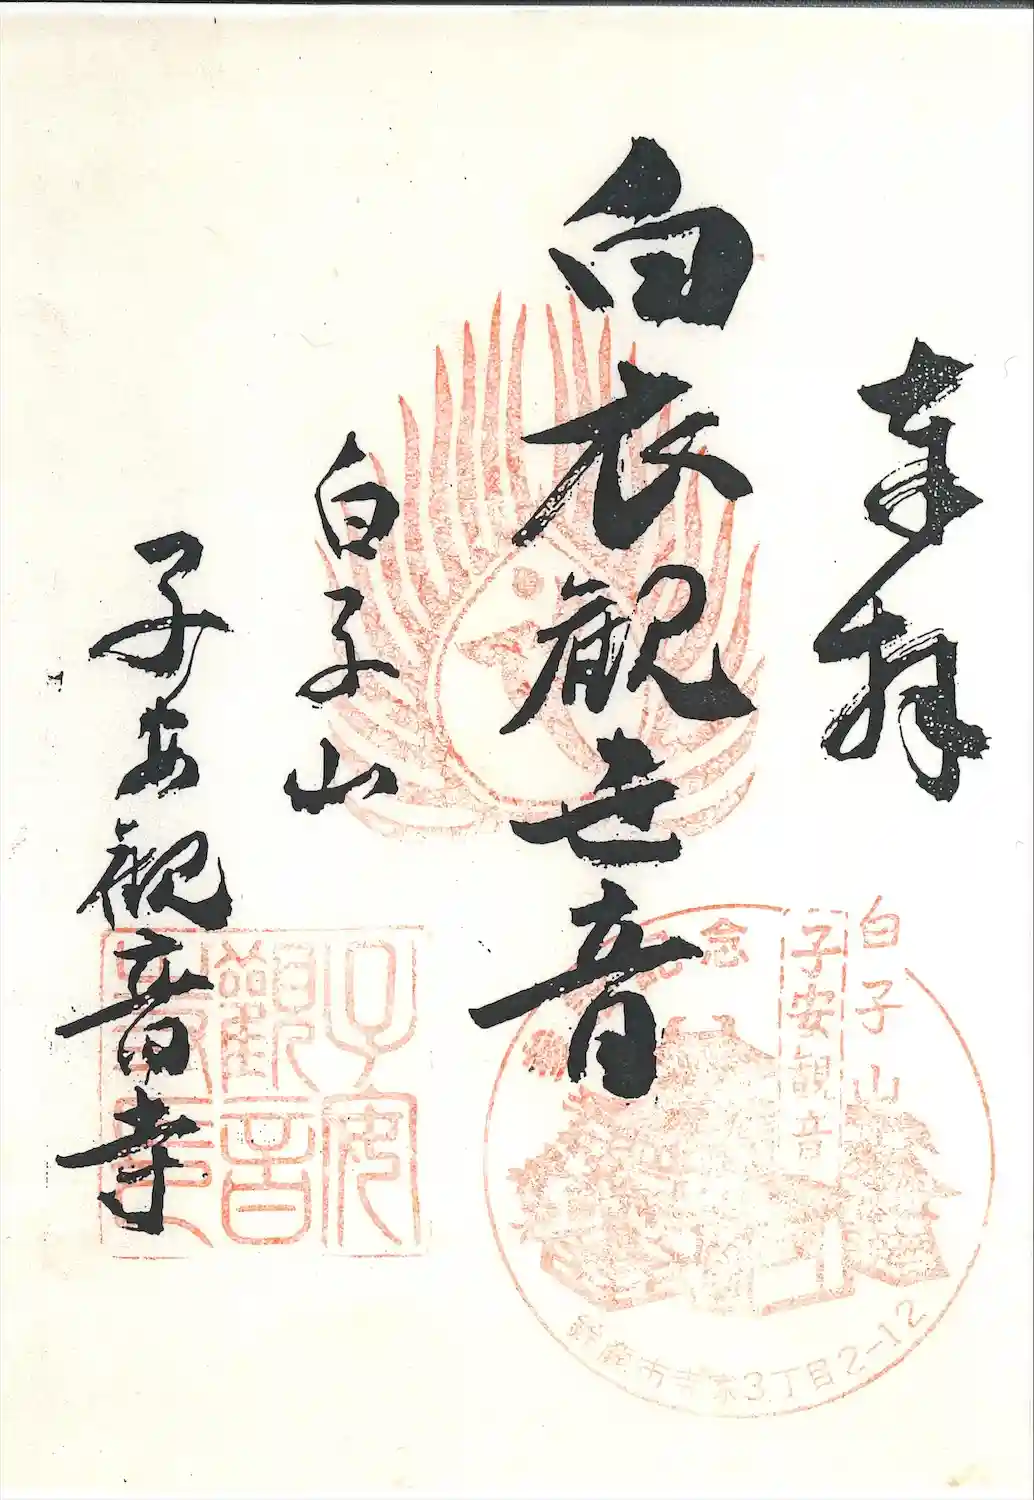 奉拝
白衣観世音
白子山
子安観音寺
白子山
子安観音
記念
鈴鹿市寺家3丁目2-12
子安
観音